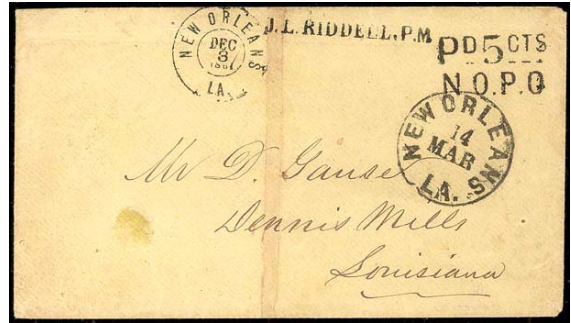 NEW ORLEANS
DEC
3
1861
LA.
J.L. RIDDELL, P.M
PD 5 CTS
N.O.P.O
NEW ORLEANS
14
MAR
LA.
Mr D. Gause
Dennis Mills
Louisiana